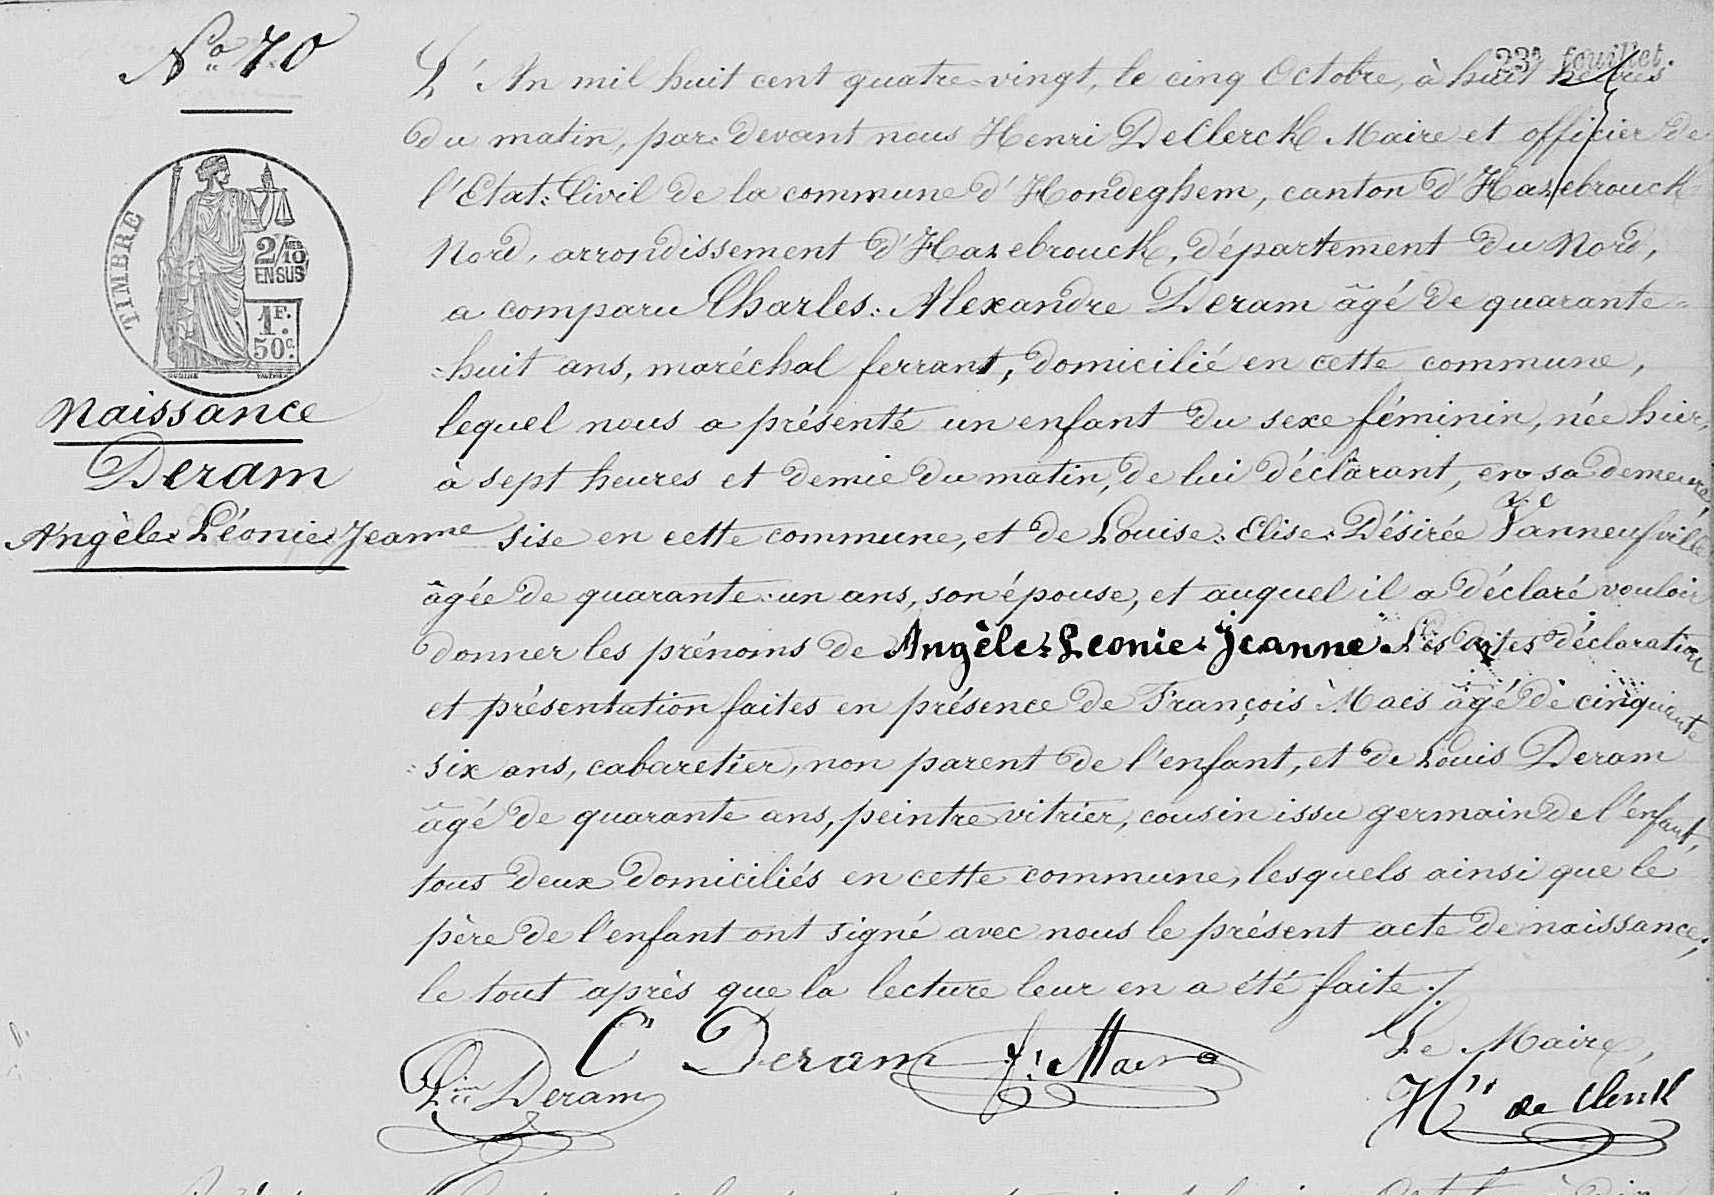 No 70
23e feuillet
L'An mil huit cent quatre-vingt, le cinq Octobre, à huit heures
du matin, par devant nous Henri DeClerck Maire et officier de
l'Etat-Civil de la commune d'Hondeghem, canton d'Hazebrouck
Nord, arrondissement d'Hazebrouck, département du Nord,
a comparu Charles-Alexandre Deram âgé de quarante-
-huit ans, maréchal ferrant, domicilié en cette commune,
lequel nous a présenté un enfant du sexe féminin, née hier,
à sept heures et demie du matin, de lui déclarant, en sa demeure
sise en cette commune, et de Louise-Elise-Désirée Vanneufville
âgée de quarante-un ans, son épouse, et auquel il a déclaré vouloir
donner les prénoms de Angèle-Leonie-Jeanne. Les dites déclaration
et présentation faites en présence de François Maes âgé de cinquante
-six ans, cabaretier, non parent de l'enfant, et de Louis Deram
âgé de quarante ans, peintre vitrier, cousin issu germain de l'enfant,
tous deux domiciliés en cette commune, lesquels ainsi que le
père de l'enfant ont signé avec nous le présent acte de naissance,
le tout après que la lecture leur en a été faite ./.
TIMBRE
2/10 MES
EN SUS
1F.
50c.
Naissance
Deram
Angèle-Léonie-Jeanne
C Deram
f. Maes
Le Maire,
Deram
Hri de Clerck